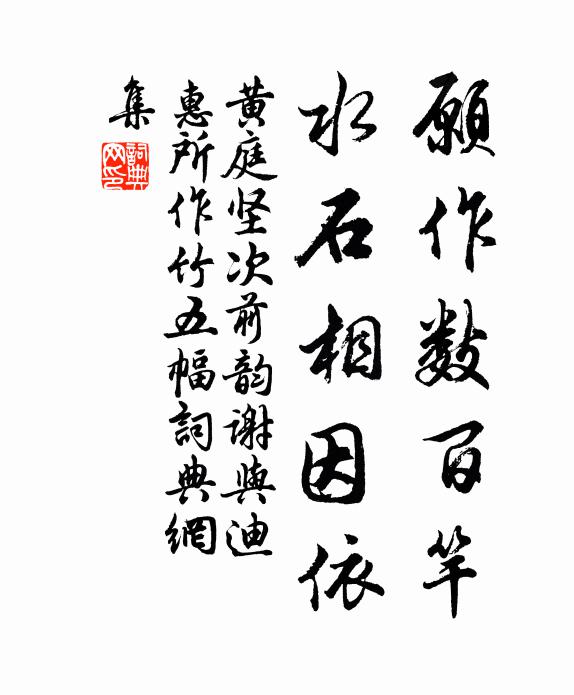 願作數百竿
水石相因依
黄庭坚次前韵谢與迪
惠所作竹五幅詞典網
集
詞典
网印